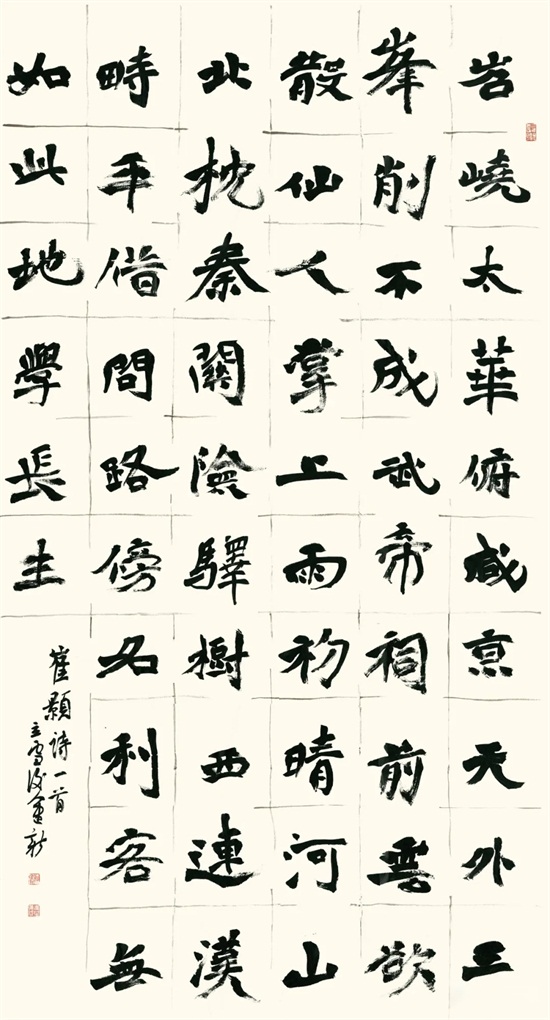 岧嶢太華俯咸京天外三
峯削不成武帝祠前雲欲
散仙人掌上雨初晴河山
北枕秦關險驛樹西連漢
畤平借問路傍名利客無
如此地學長生
崔顥詩一首